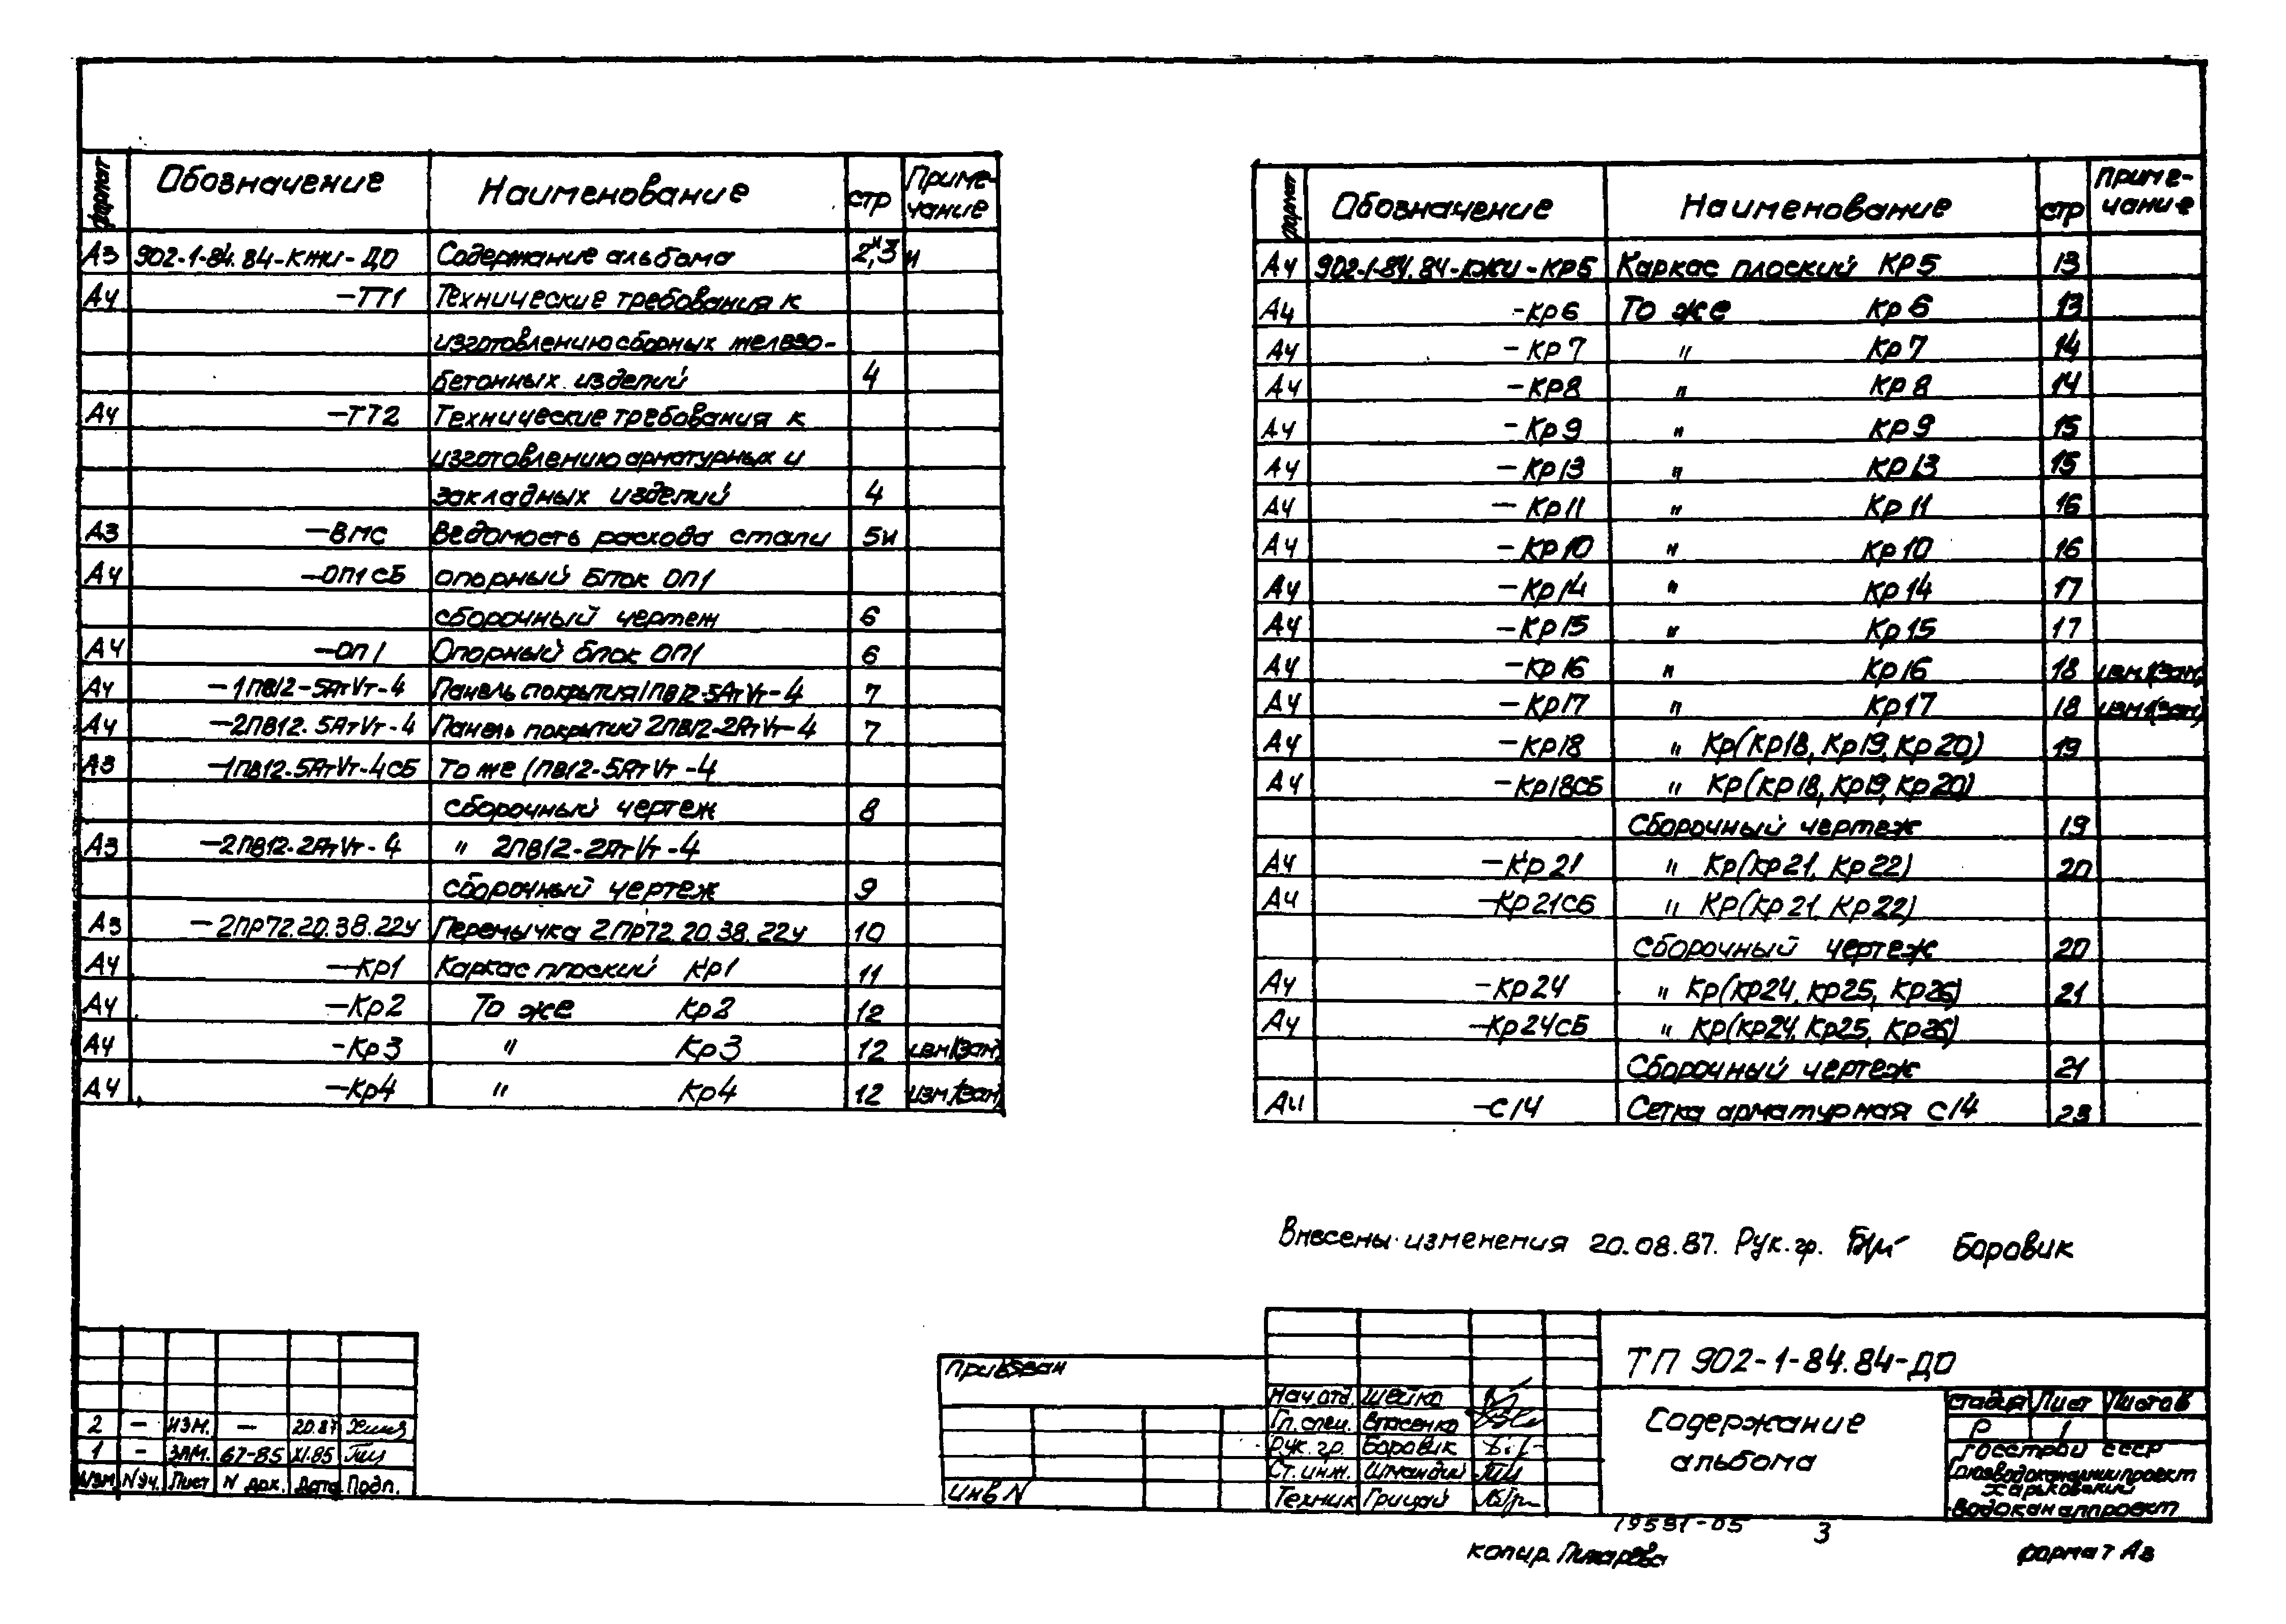 формат Обозначение Наименование стр Приме-
чание
А3 902-1-84.84-КЖИ-ДО Содержание альбома 2,3и
А4 -ТТ1 Технические требования к
изготовлению сборных железо-
бетонных изделий 4
А4 -ТТ2 Технические требования к
изготовлению арматурных и
закладных изделий 4
А3 -ВМС Ведомость расхода стали 5и
А4 -ОП1СБ Опорный блок ОП1
сборочный чертеж 6
А4 -ОП1 Опорный блок ОП1 6
А4 -1ПВ12-5АтVт-4 Панель покрытия 1ПВ12-5АтVт-4 7
А4 -2ПВ12.5АтVт-4 Панель покрытий 2ПВ12-2АтVт-4 7
А3 -1ПВ12-5АтVт-4СБ То же 1ПВ12-5АтVт-4
сборочный чертеж 8
А3 -2ПВ12-2АтVт-4 " 2ПВ12-2АтVт-4
сборочный чертеж 9
А3 -2ПР72.20.38.22у Перемычка 2ПР72.20.38.22у 10
А4 -Кр1 Каркас плоский Кр1 11
А4 -Кр2 То же Кр2 12
А4 -Кр3 " Кр3 12 изм1(зам)
А4 -Кр4 " Кр4 12 изм1(зам)
формат Обозначение Наименование стр Приме-
чание
А4 902-1-84.84-КЖИ-КР5 Каркас плоский КР5 13
А4 -Кр6 То же Кр6 13
А4 -Кр7 " Кр7 14
А4 -КР8 " КР8 14
А4 -Кр9 " КР9 15
А4 -Кр13 " КР13 15
А4 -Кр11 " Кр11 16
А4 -КР10 " Кр10 16
А4 -Кр14 " Кр14 17
А4 -Кр15 " Кр15 17
А4 -Кр16 " Кр16 18 изм1(зам)
А4 -Кр17 " Кр17 18 изм1(зам)
А4 -Кр18 " Кр(Кр18, Кр19, Кр20) 19
А4 -Кр18СБ " Кр(Кр18, Кр19, Кр20)
Сборочный чертеж 19
А4 -Кр21 " Кр(Кр21, Кр22) 20
А4 -Кр21СБ " Кр(Кр21, Кр22)
Сборочный чертеж 20
А4 -Кр24 " Кр(Кр24, Кр25, Кр26) 21
А4 -Кр24СБ " Кр(Кр24, Кр25, Кр26)
Сборочный чертеж 21
А4 -С14 Сетка арматурная С14 23
Внесены изменения 20.08.87. Рук. гр. Боровик
2 - ИЗМ. - 20.87
1 - ЗАМ. 67-85 XI.85
Изм Nуч. Лист N док. Дата Подп.
Привязан
Инв N
Нач.отд. Шейко
Гл.спец. Власенко
Рук. гр. Боровик
Ст.инж. Шмандий
Техник Грицай
ТП 902-1-84.84-ДО
Содержание
альбома
Стадия Лист Листов
Р 1
Госстрой СССР
Союзводоканалниипроект
Харьковский
Водоканалпроект
19531-05 3
копир. формат А3